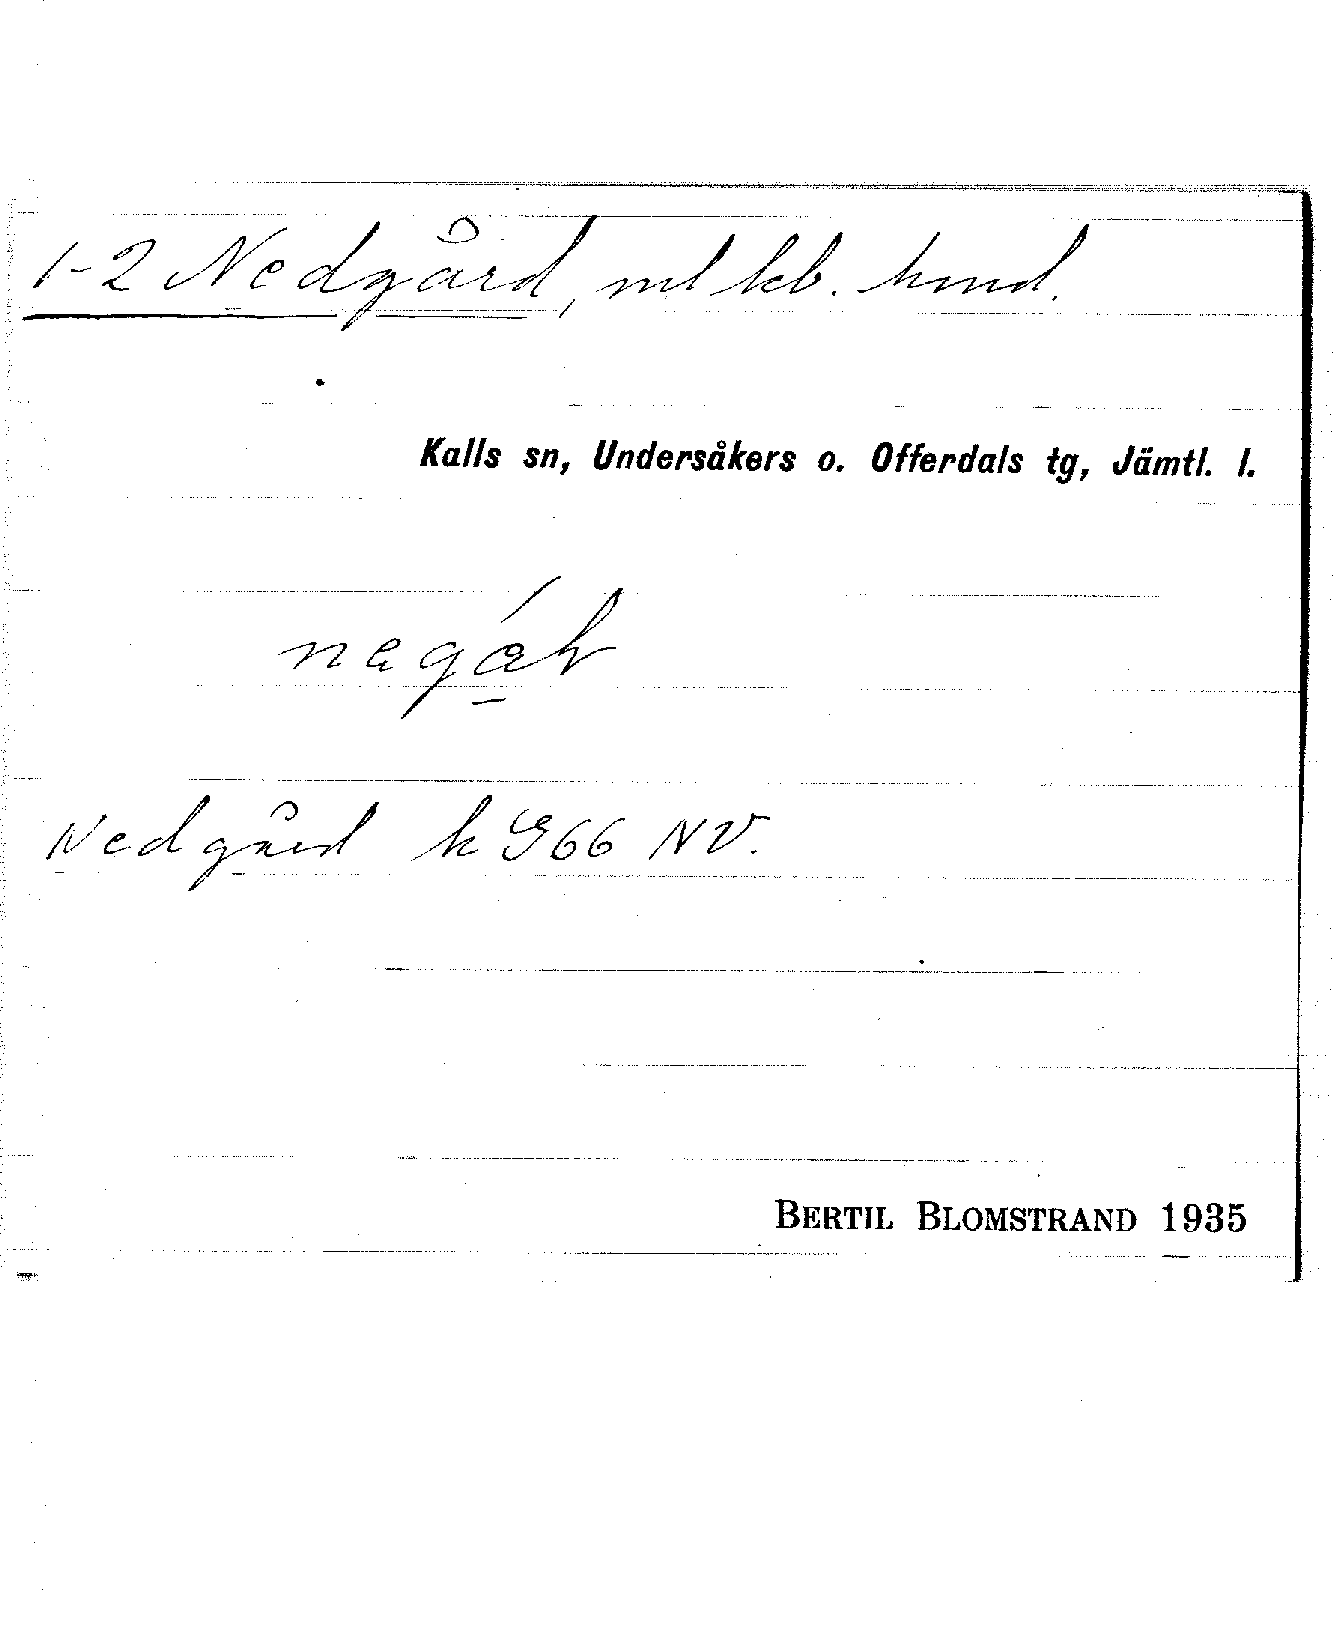 1-2 Nedgård, ml kb. hmd.
Kalls sn, Undersåkers o. Offerdals tg, Jämtl. l.
Nedgård k G66 NV.
BERTIL BLOMSTRAND 1935